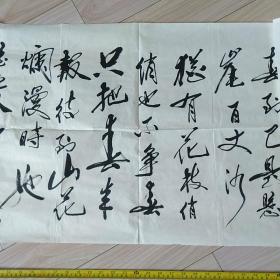 春到已是悬
崖百丈冰
猶有花枝俏
俏也不争春
只把春来
報待到山花
爛漫時她